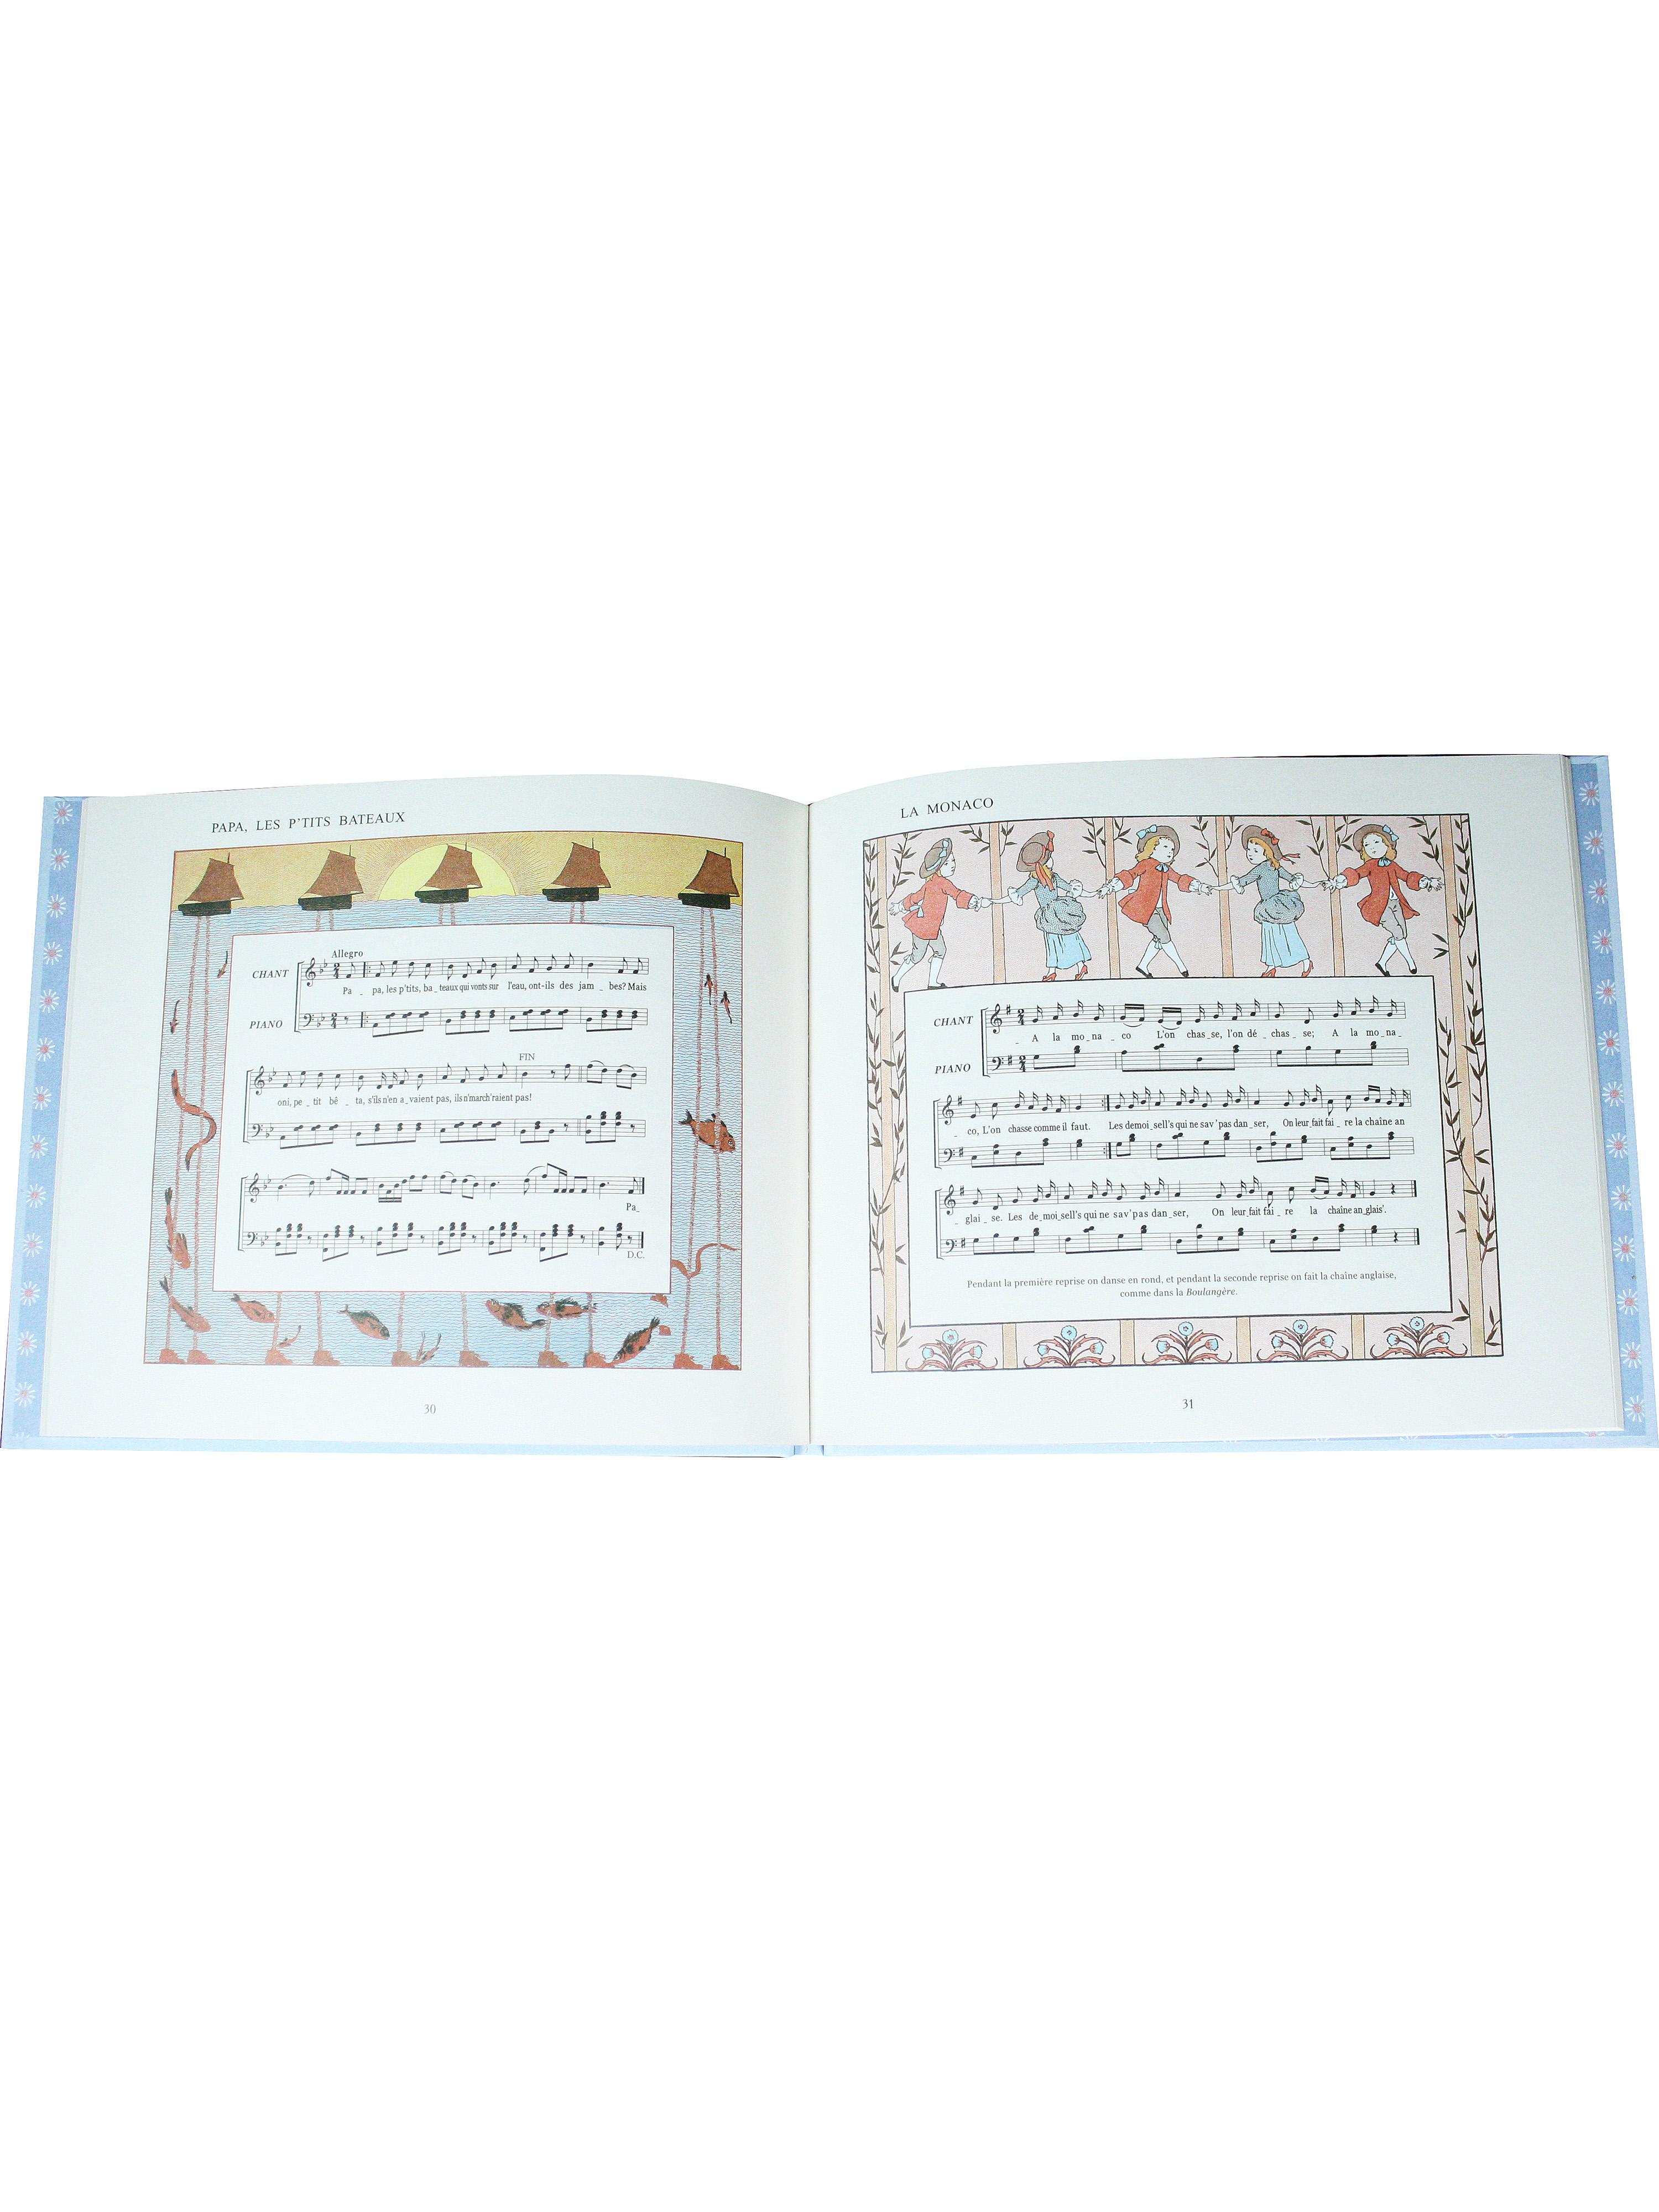 PAPA, LES P'TITS BATEAUX
Allegro
CHANT
Pa _ pa, les p'tits, ba _ teaux qui vonts sur l'eau, ont-ils des jam _ bes? Mais
PIANO
FIN
oni, pe _ tit bê _ ta, s'ils n'en a _ vaient pas, ils n'march'raient pas!
Pa _
D.C.
30
LA MONACO
CHANT
_ A la mo _ na _ co L'on chas _ se, l'on dé _ chas _ se; A la mo _ na _
PIANO
_ co, L'on chasse comme il faut. Les demoi _ sell's qui ne sav'pas dan _ ser, On leur fait fai _ re la chaîne an
_ glai _ se. Les de _ moi _ sell's qui ne sav'pas dan _ ser, On leur fait fai _ re la chaîne an _ glais'.
Pendant la première reprise on danse en rond, et pendant la seconde reprise on fait la chaîne anglaise,
comme dans la Boulangère.
31